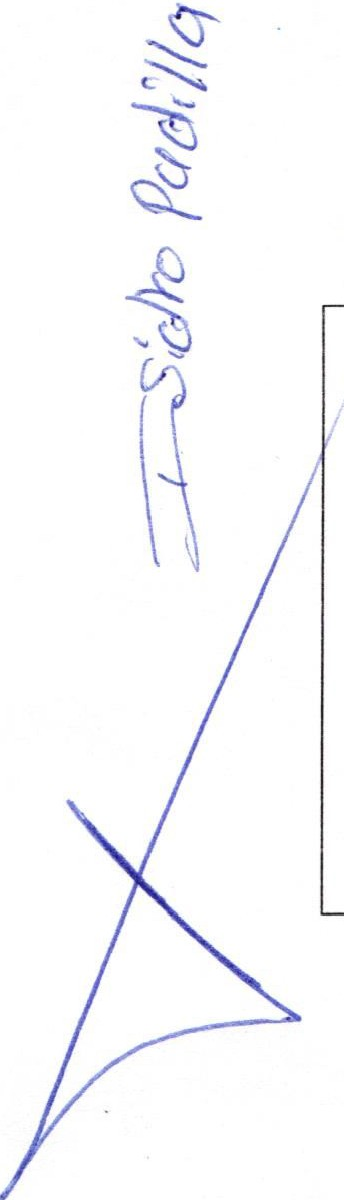 Isidro Padilla